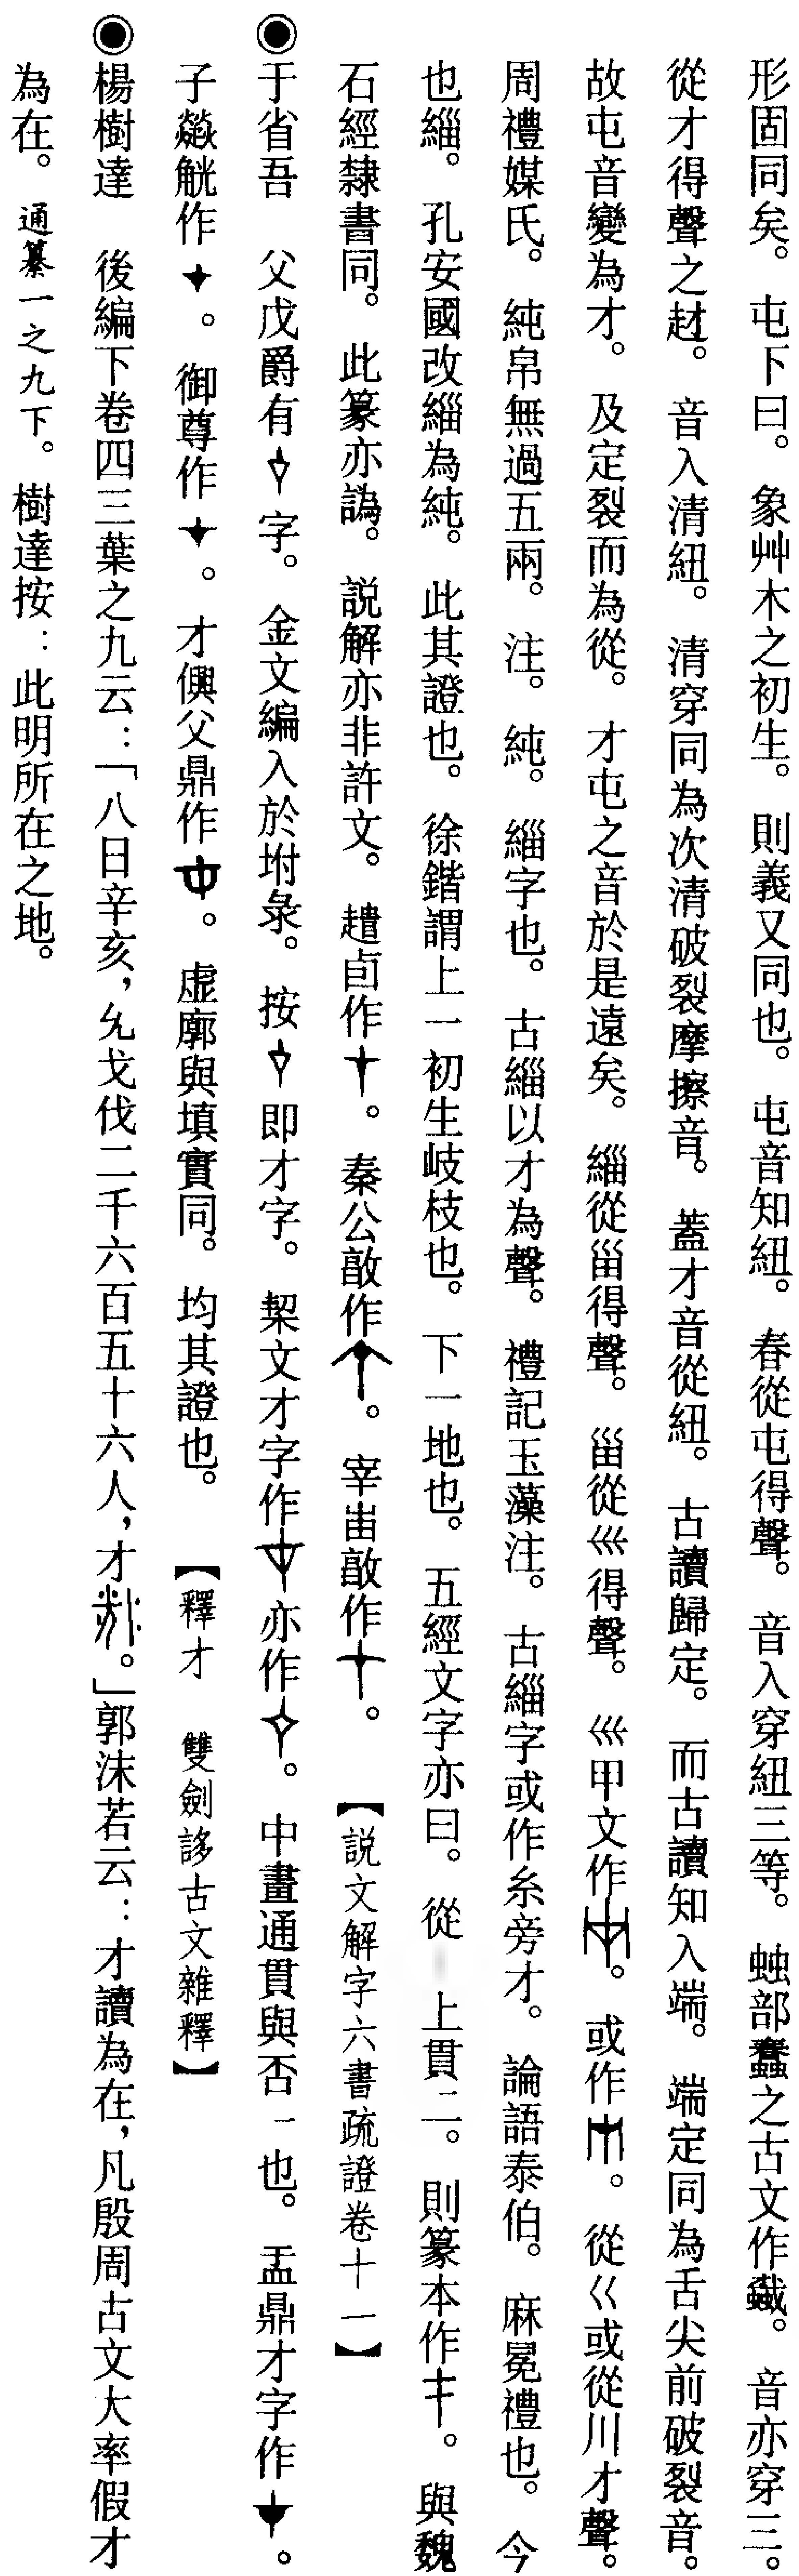 形固同矣。屯下曰。象艸木之初生。則義又同也。屯音知紐。春從屯得聲。音入穿紐三等。䖵部蠢之古文作𢧨。音亦穿三。
從才得聲之赼。音入清紐。清穿同為次清破裂摩擦音。蓋才音從紐。古讀歸定。而古讀知入端。端定同為舌尖前破裂音。
故屯音變為才。及定裂而為從。才屯之音於是遠矣。緇從甾得聲。甾從巛得聲。巛甲文作。或作。從巜或從川才聲。
周禮媒氏。純帛無過五兩。注。純。緇字也。古緇以才為聲。禮記玉藻注。古緇字或作糸旁才。論語泰伯。麻冕禮也。今
也緇。孔安國改緇為純。此其證也。徐鍇謂上一初生岐枝也。下一地也。五經文字亦曰。從上貫二。則篆本作。與魏
石經隸書同。此篆亦譌。説解亦非許文。趞卣作。秦公𣪘作。宰甾𣪘作。【説文解字六書疏證卷十一】
◉于省吾 父戊爵有字。金文編入於坿彔。按即才字。栔文才字作亦作。中畫通貫與否一也。盂鼎才字作。
子燚觥作。御尊作。才僎父鼎作。虛廓與填實同。均其證也。【釋才 雙劍誃古文雜釋】
◉楊樹達 後編下卷四三葉之九云：「八日辛亥，允戈伐二千六百五十六人，才。」郭沫若云：才讀為在，凡殷周古文大率假才
為在。通纂一之九下。樹達按：此明所在之地。